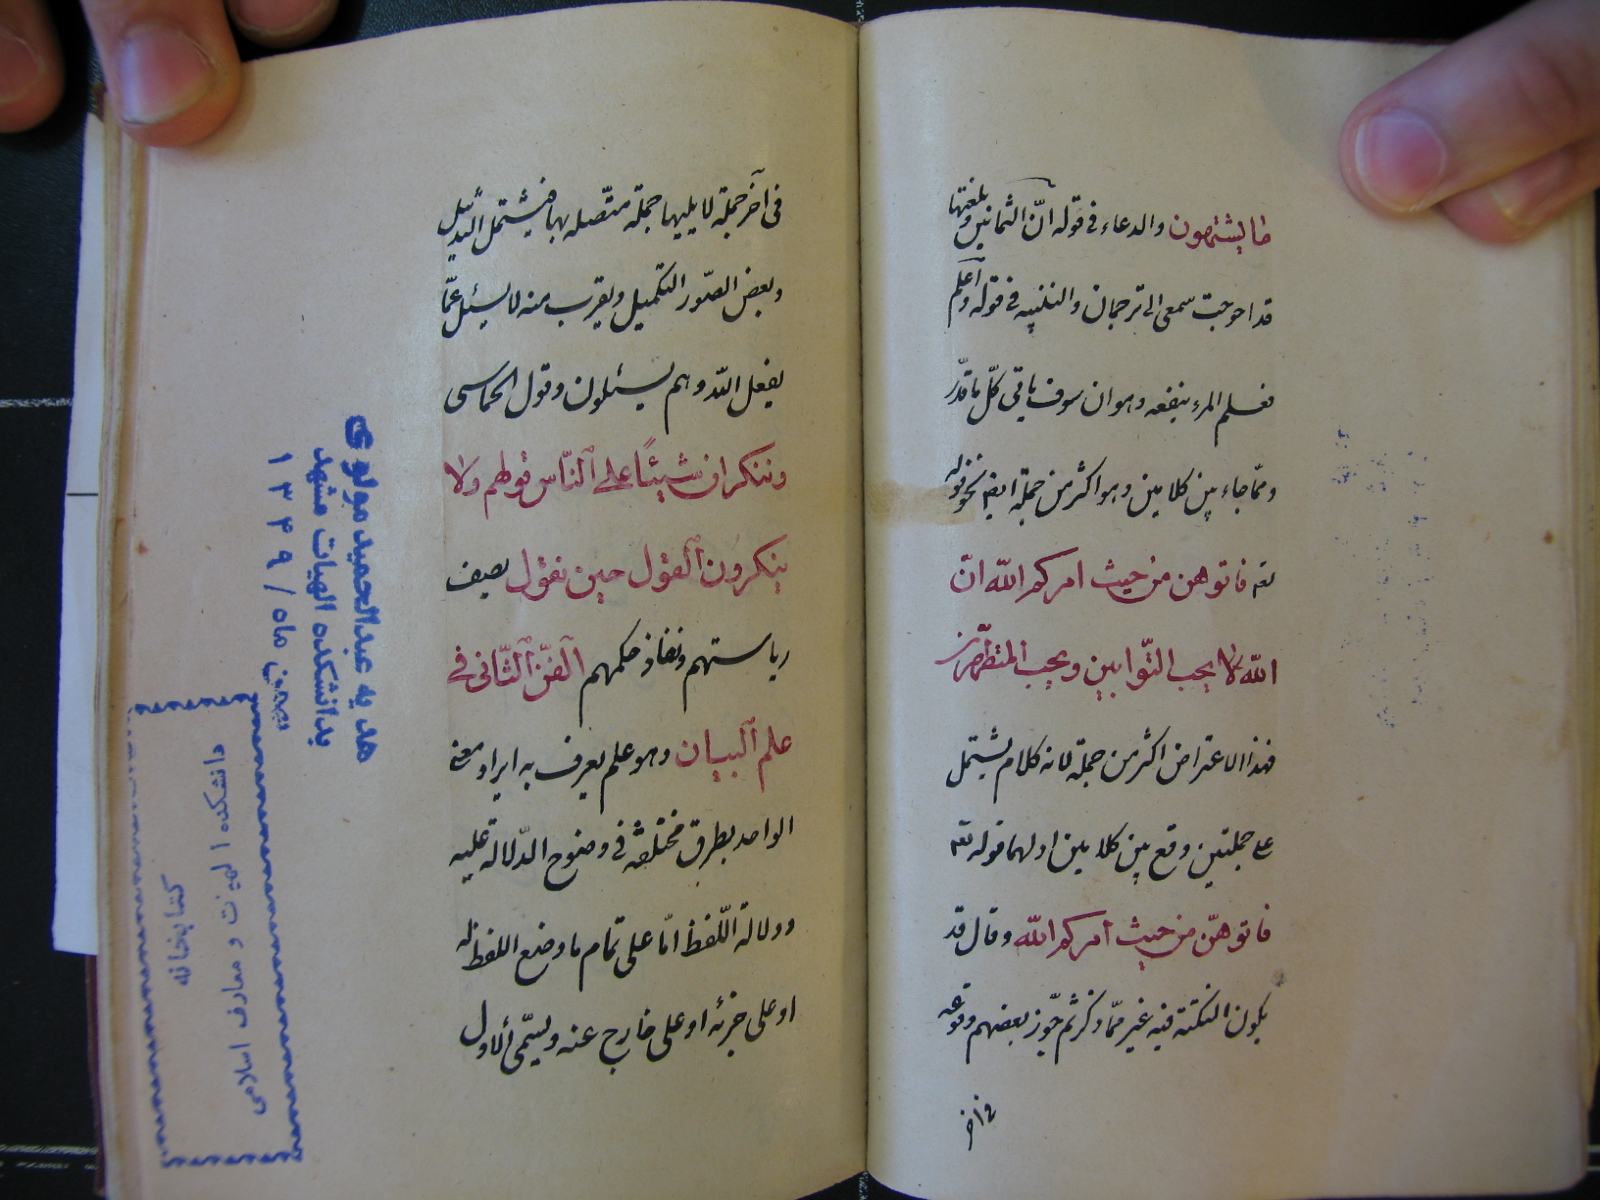 ما يشتهون والدعاء فى قوله انّ الثمانين وبلغتها
قد احوجت سمعى الى ترجمان والتنبيه فى قوله واعلم
فعلم المرء ينفعه وهو ان سوف ياتى كلّ ما قدّر
وممّا جاء بين كلامين وهو اكثر من جملة ايضا نحو قوله
تعه فاتوهن من حيث امركم الله انّ
الله يحب التّوابين ويحب المتطهّرين
فهذا الاعتراض اكثر من جملة لانه كلام يشتمل
على جملتين وقع بين كلامين اولهما قوله تعه
فاتوهنّ من حيث امركم الله وقال قد
يكون النكتة فيه غير ممّا ذكر ثم جوّز بعضهم وقوعه
فى آخر
فى آخر جملة لا يليها جملة متّصله بها فيشتمل التذييل
وبعض الصّور التكميل ويقرب منه لا يسئل عمّا
يفعل الله وهم يسئلون وقول الحماسى
وننكر ان شيئًا على النّاس قولهم ولا
ينكرون القول حين نقول يصف
رياستهم ونفاذ حكمهم الفنّ الثّانى فى
علم البيان وهو علم يعرف به ايراد معنى
الواحد بطرق مختلفه فى وضوح الدّلالة عليه
ودلالة اللّفظ امّا على تمام ما وضع اللفظ له
او على جزئه او على خارج عنه ويسمّى الاول
هديه عبدالحميد مولوى
بدانشكده الهيات مشهد
بهمن ماه / ۱۳۴۹
دانشكده الهيات و معارف اسلامى
كتابخانه